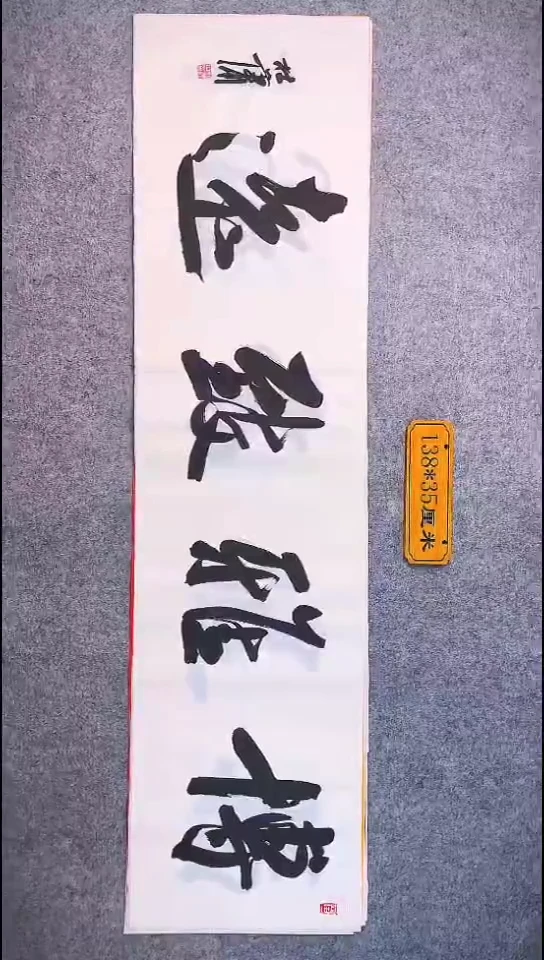 博雅致遠
138*35厘米